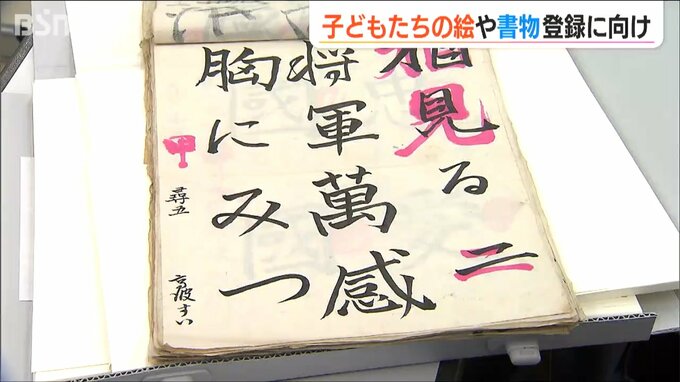 BSN
子どもたちの絵や書物登録に向け
相見る二
将軍萬感
胸にみつ
甲
尋五